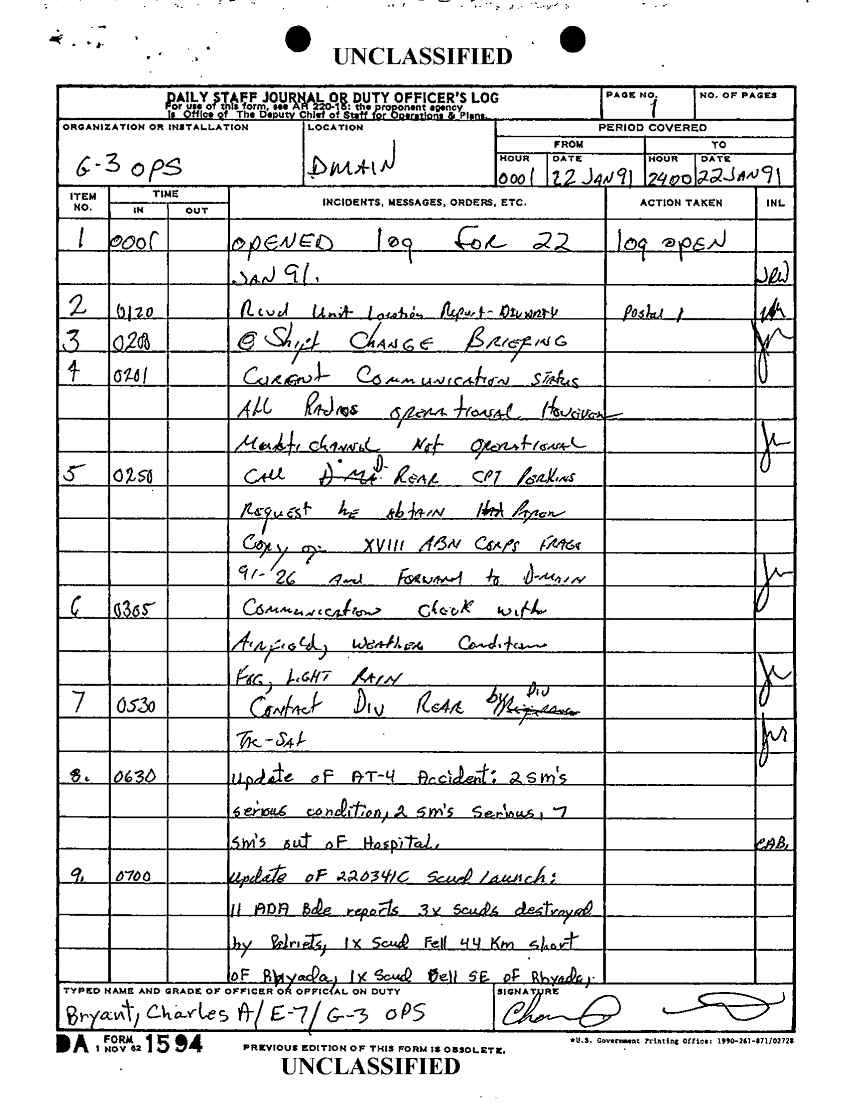 UNCLASSIFIED
DAILY STAFF JOURNAL OR DUTY OFFICER'S LOG
For use of this form, see AR 220-15: the proponent agency
is Office of The Deputy Chief of Staff for Operations & Plans.
PAGE NO.
1
NO. OF PAGES
ORGANIZATION OR INSTALLATION
G-3 OPS
LOCATION
DMAIN
PERIOD COVERED
FROM TO
HOUR DATE HOUR DATE
0001 22 JAN 91 2400 22 JAN 91
ITEM NO. TIME IN OUT INCIDENTS, MESSAGES, ORDERS, ETC. ACTION TAKEN INL
1 0001 OPENED log FOR 22 log OPEN
JAN 91. JRW
2 0120 Rcvd Unit Location Report - DIVARTY Postal 1
3 0200 @ Shift CHANGE BRIEFING
4 0201 CURRENT COMMUNICATION STATUS
All RADIOS OPERATIONAL However
Multi channel Not OPERATIONAL
5 0250 CALL D REAR CPT PERKINS
Request he obtain Paper
Copy of XVIII ABN CORPS FRAGO
91-26 and FORWARD to D-MAIN
6 0305 Communication Check with
AIRFIELD, WEATHER Conditions
FOG, LIGHT RAIN
7 0530 CONTACT DIV REAR by Div
TAC-SAT
8. 0630 update of AT-4 Accident: 2 SM's
serious condition, 2 SM's Serious, 7
SM's out of Hospital. CAB.
9. 0700 update of 220341C Scud launch:
11 ADA Bde reports 3x Scuds destroyed
by Patriets, 1x Scud Fell 44 Km short
OF Rhyada, 1x Scud Fell SE of Rhyada,
TYPED NAME AND GRADE OF OFFICER OR OFFICIAL ON DUTY
Bryant, Charles A/ E-7/ G-3 OPS
SIGNATURE
DA FORM 1 NOV 62 1594
PREVIOUS EDITION OF THIS FORM IS OBSOLETE.
*U.S. Government Printing Office: 1990-261-871/02728
UNCLASSIFIED